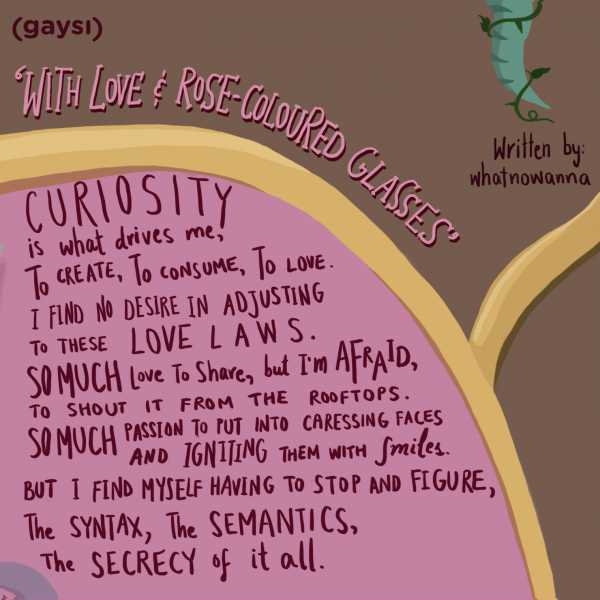 (gaysi)
'WITH LOVE & ROSE-COLOURED GLASSES'
Written by:
whatnowanna
CURIOSITY
is what drives me,
To CREATE, To CONSUME, To LOVE.
I FIND NO DESIRE IN ADJUSTING
TO THESE LOVE LAWS.
SO MUCH Love To Share, but I'm AFRAID,
TO SHOUT IT FROM THE ROOFTOPS.
SO MUCH PASSION TO PUT INTO CARESSING FACES
AND IGNITING THEM WITH Smiles.
BUT I FIND MYSELF HAVING TO STOP AND FIGURE,
The SYNTAX, The SEMANTICS,
The SECRECY of it all.